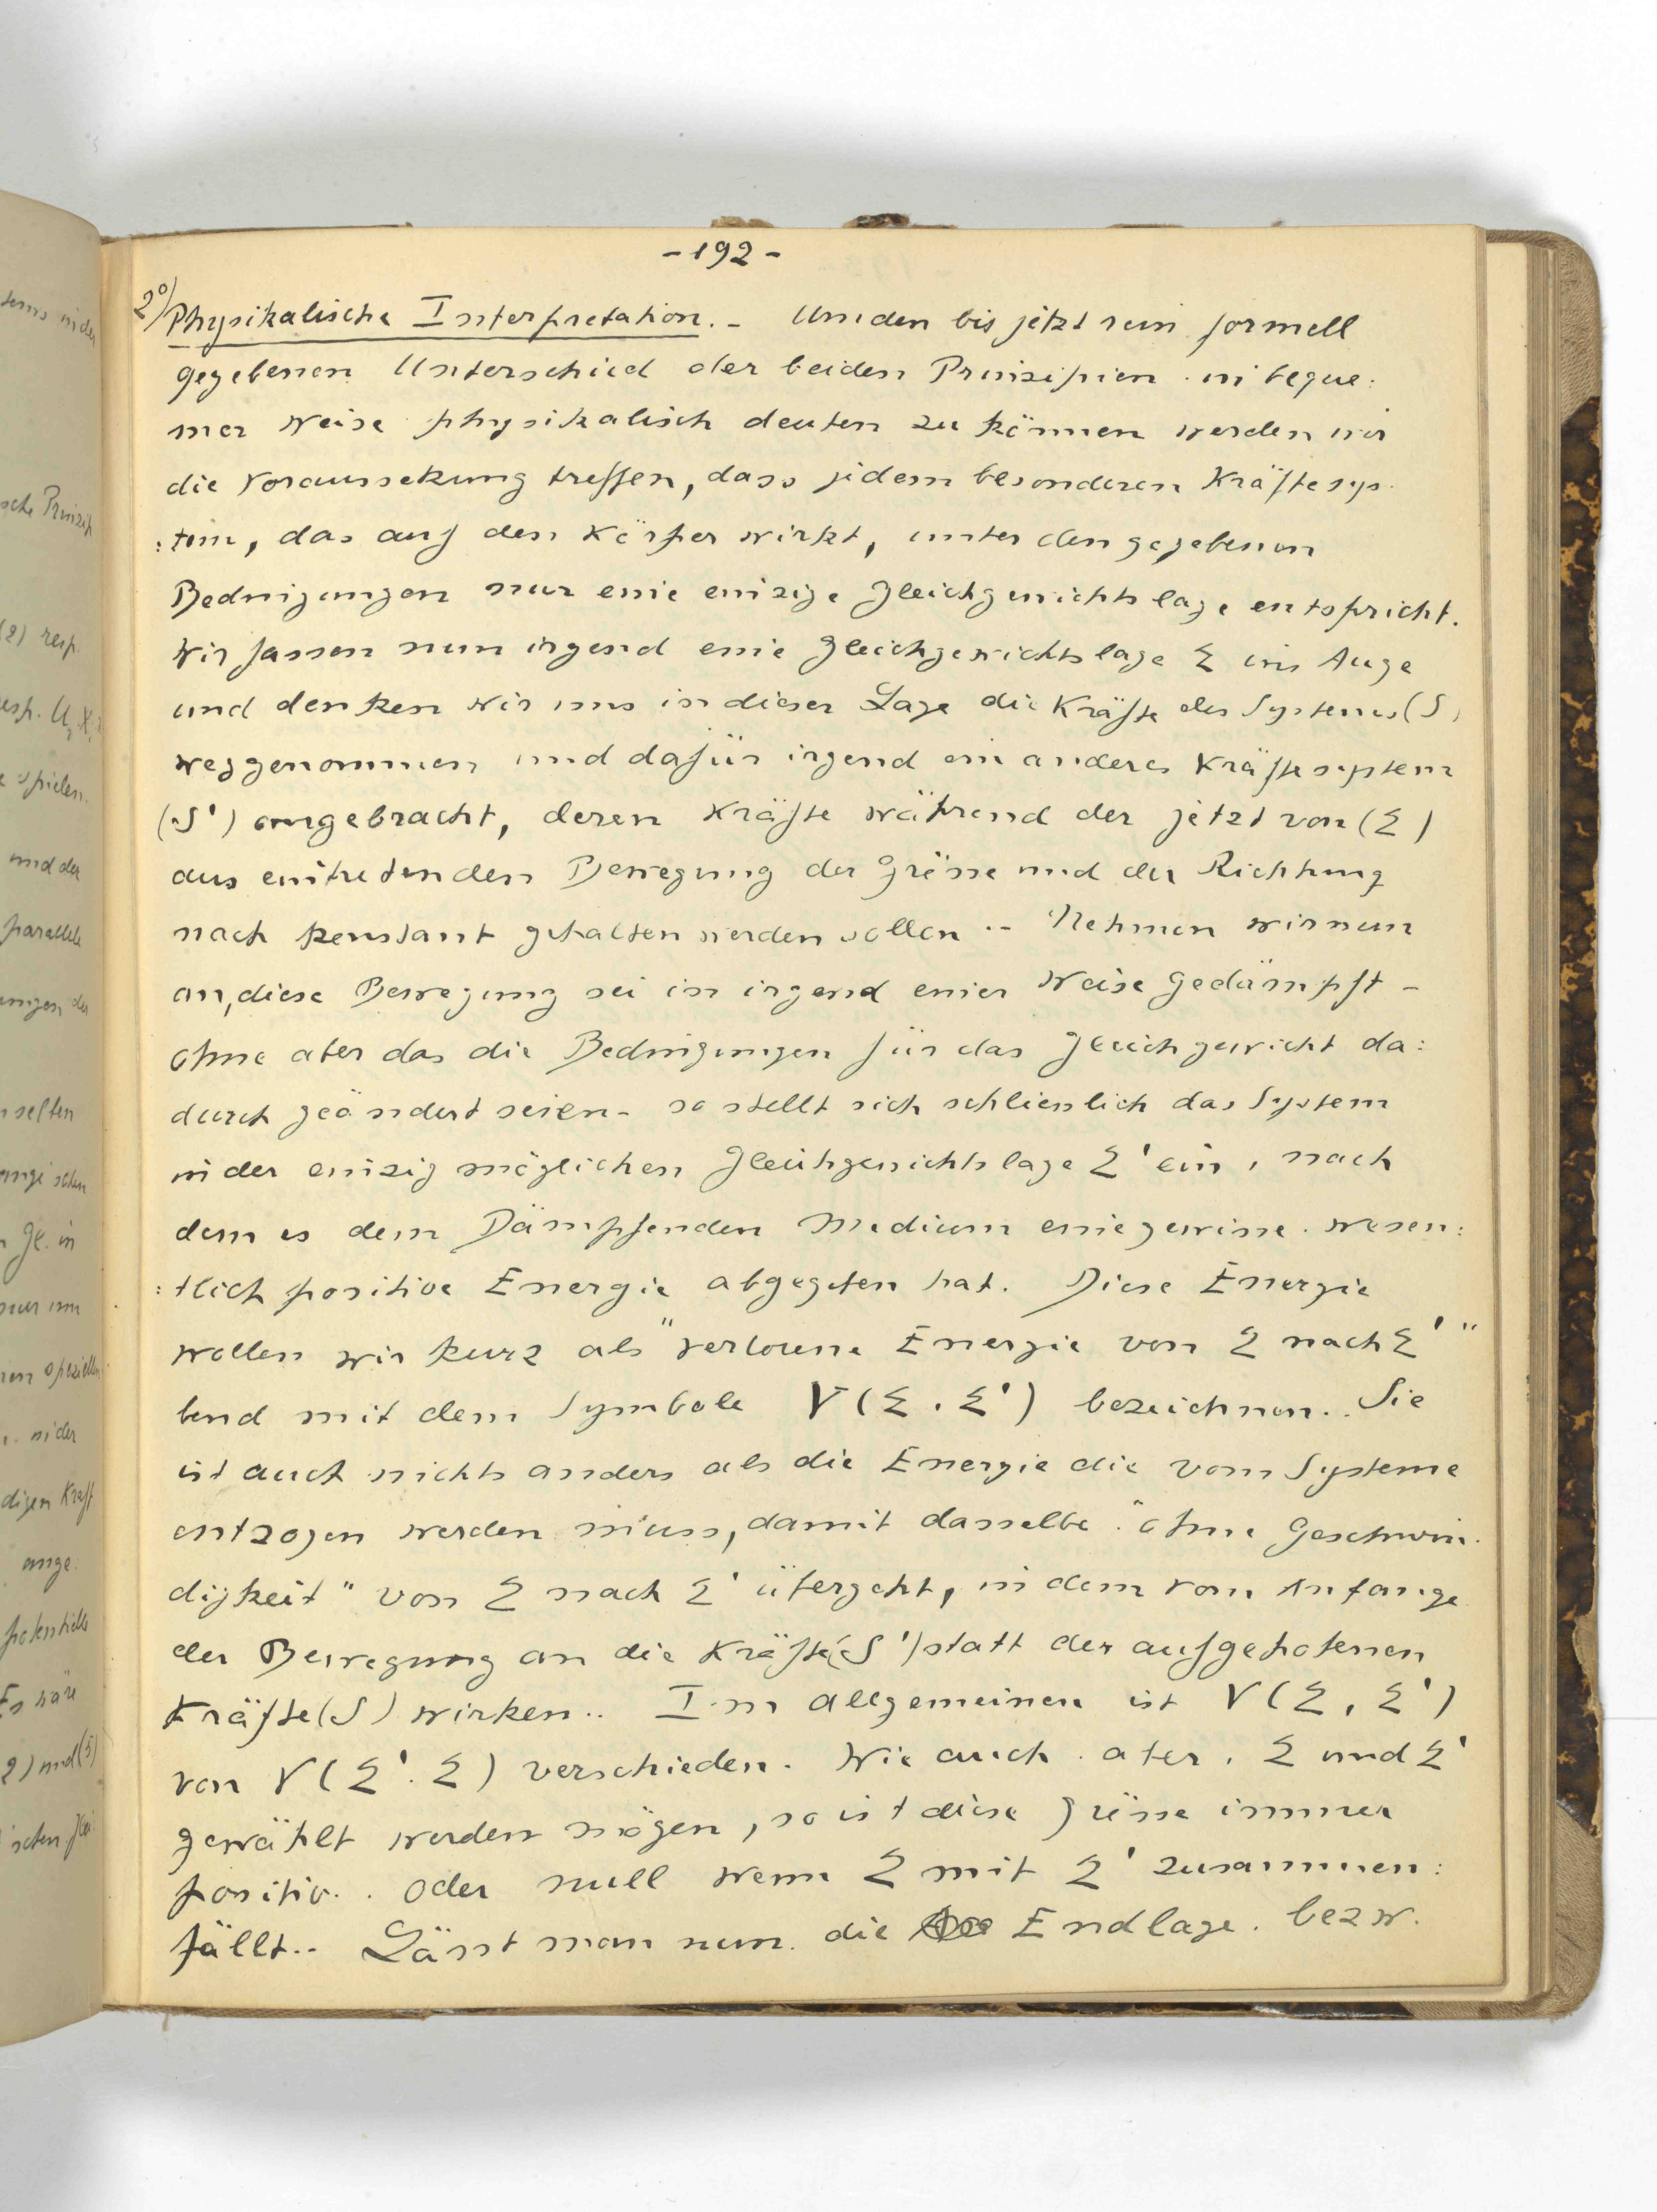 -192-
2°) Physikalische Interpretation. - Um den bis jetzt rein formell
gegebenen Unterschied der beiden Prinzipien in beque:
mer Weise physikalisch deuten zu können werden wir
die Voraussetzung treffen, dass jedem besonderen Kräftesys.
:tem, das auf den Körper wirkt, unter den gegebenen
Bedingungen nur eine einzige Gleichgewichtslage entspricht.
Wir fassen nun irgend eine Gleichgewichtslage Σ ins Auge
und denken wir uns in dieser Lage die Kräfte des Systemes (S)
weggenommen und dafür irgend ein anderes Kräftesystem
(S') angebracht, deren Kräfte während der jetzt von (Σ)
aus eintretenden Bewegung der Grösse und der Richtung
nach konstant gehalten werden sollen .- Nehmen wir nun
an, diese Bewegung sei in irgend einer Weise gedämpft -
ohne aber das die Bedingungen für das Gleichgewicht da:
durch geändert seien - so stellt sich schliesslich das System
in der einzig möglichen Gleichgewichtslage Σ' ein, nach
dem es dem Dämpfenden Medium eine gewisse wesen:
:tlich positive Energie abgegeben hat. Diese Energie
wollen wir kurz als "verlorene Energie von Σ nach Σ'"
bend mit dem Symbole V(Σ.Σ') bezeichnen.. Sie
ist auch nichts anders als die Energie die vom Systeme
entzogen werden muss, damit dasselbe "ohne Geschwin.
digkeit" von Σ nach Σ' übergeht, in dem vom Anfange
der Bewegung an die Kräfte (S') statt der aufgehobenen
Kräfte (S) wirken.. Im allgemeinen ist V(Σ, Σ')
von V(Σ'.Σ) verschieden. Wie auch aber, Σ und Σ'
gewählt werden mögen, so ist diese Grösse immer
positiv.. oder null wenn Σ mit Σ' zusammen:
fällt.- Lässt man nun die Endlage. bezw.
sche Prinzip
(2) resp.
spielen.
und der
parallele
ungen der
selben
Gl. in
nur um
speziellen
in der
digen Kraft
ange:
potentielle
Es wäre
2) und (5)